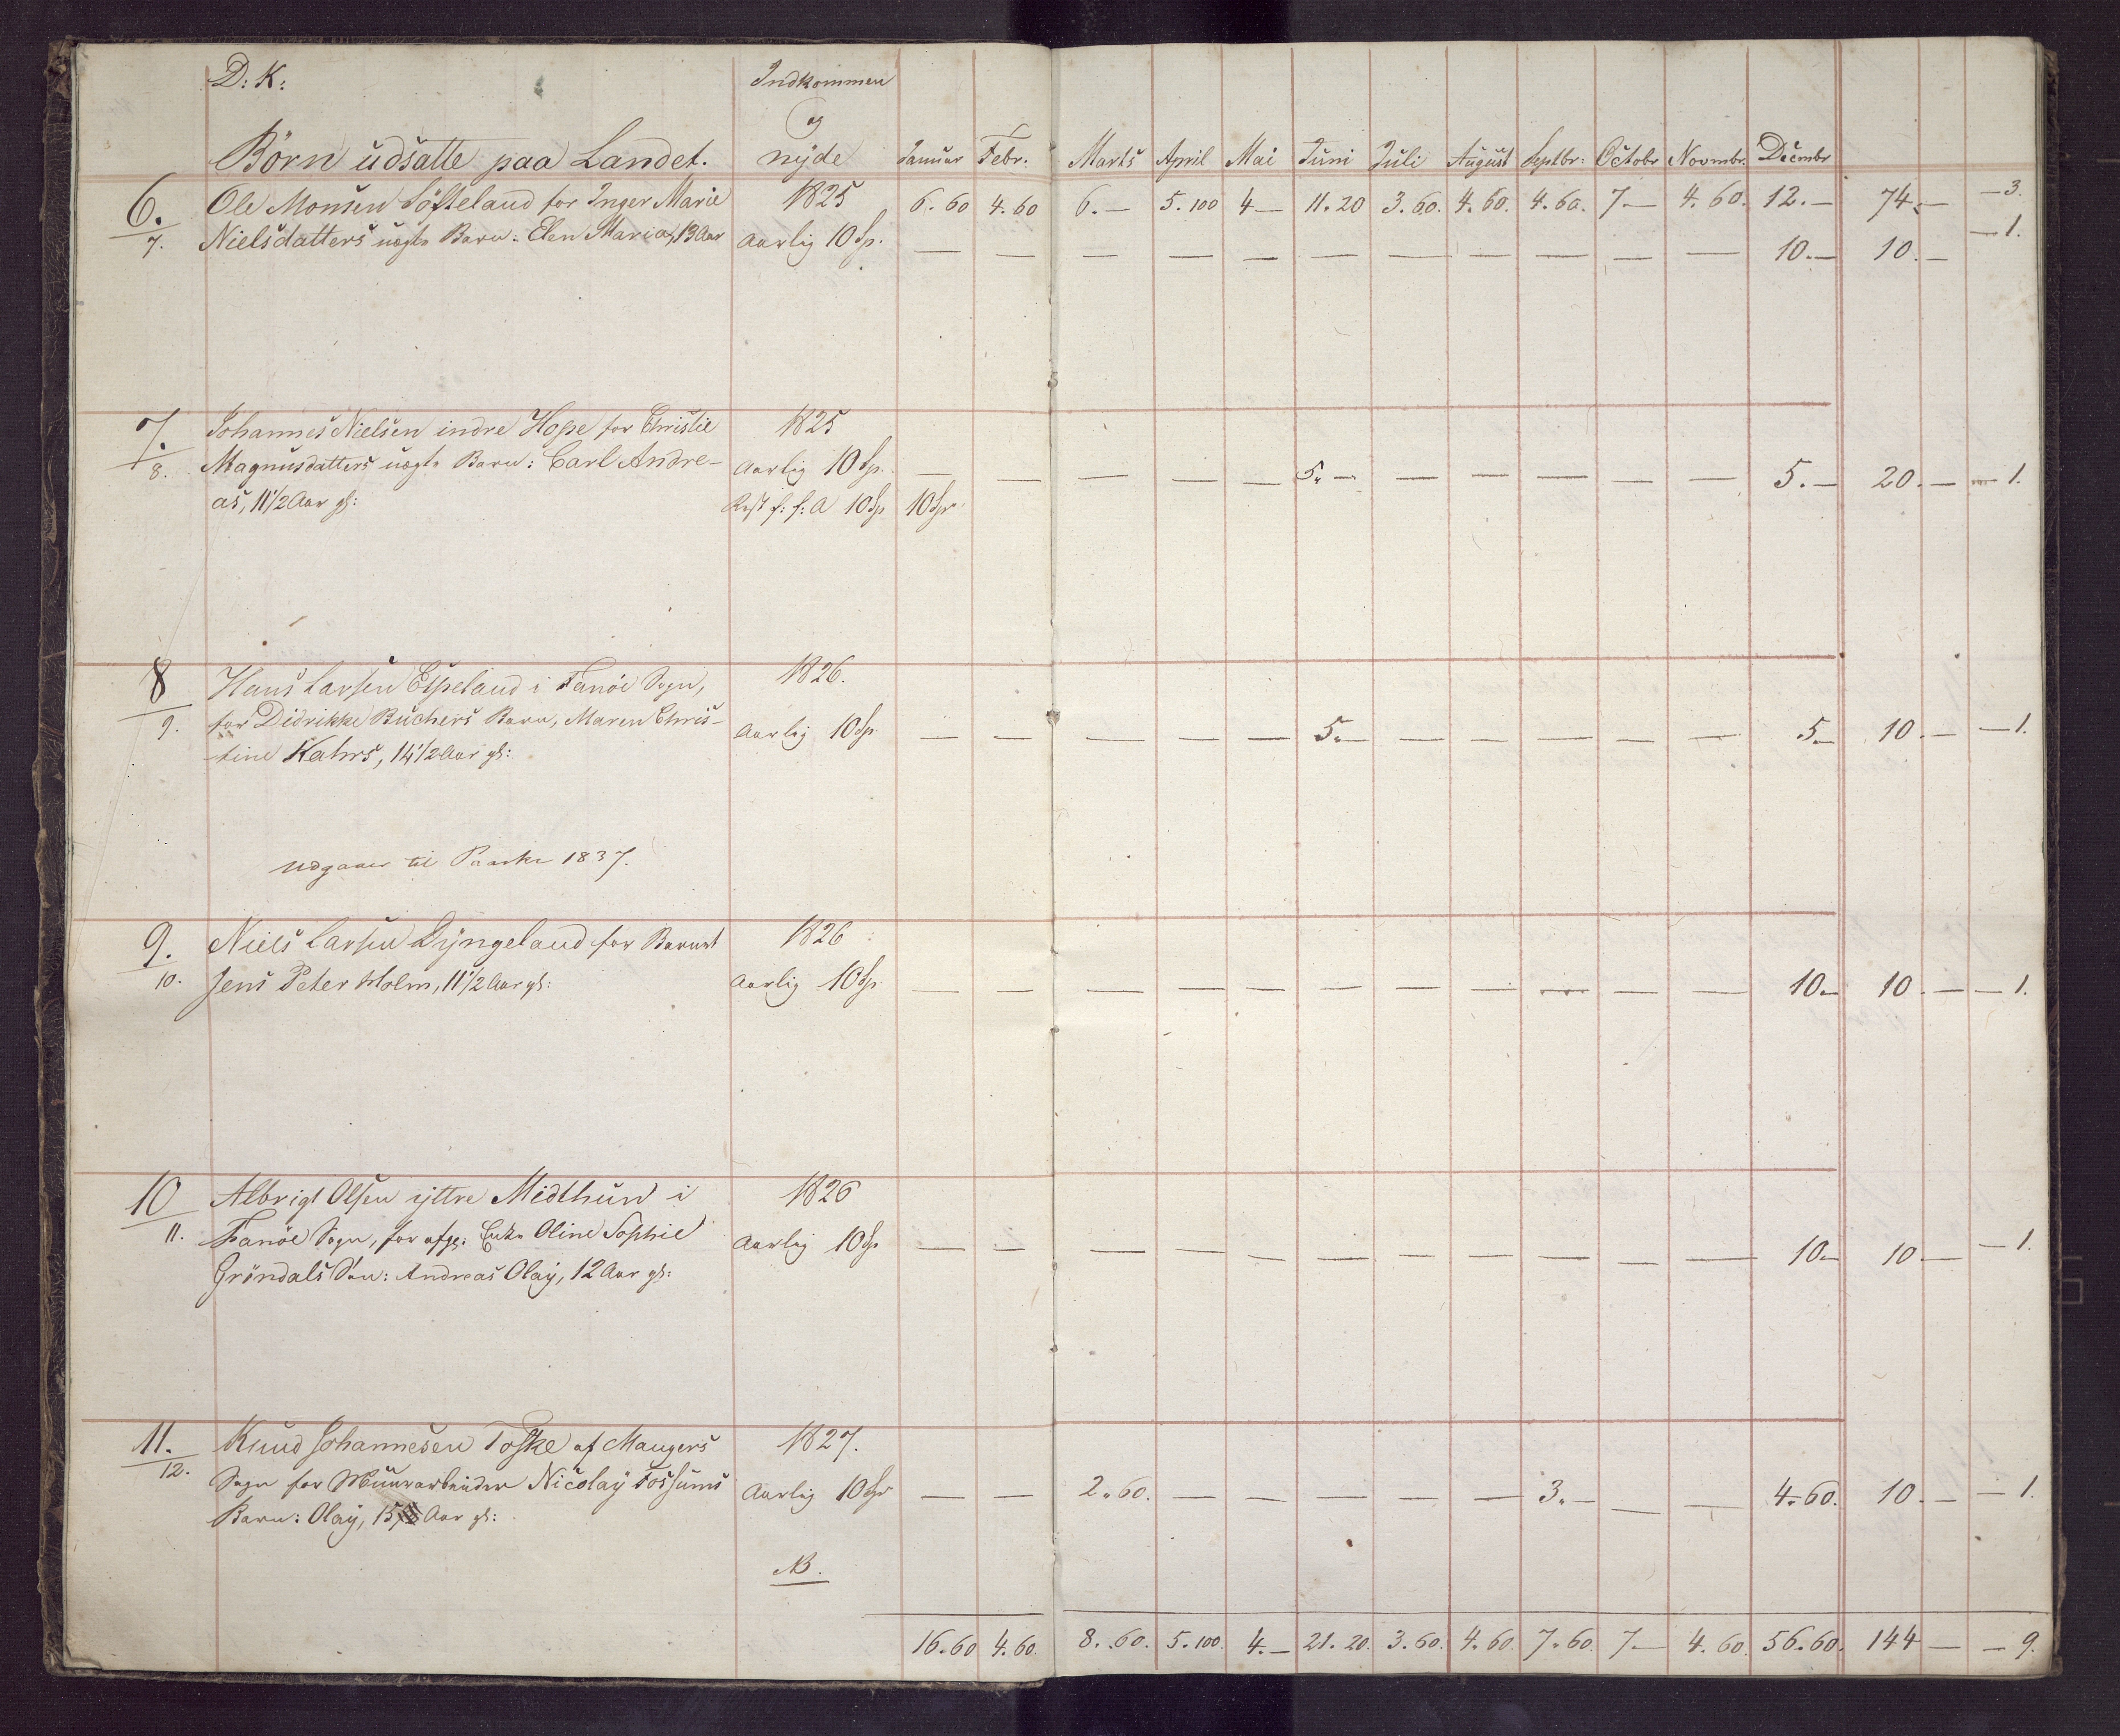 D: K:
Indkommen
og
Börn udsatte paa Landet. nyde Januar Febr. Marts April Mai Juni Juli August Septbr: Octobr Novmbr. Decmbr
6. Ole Monsen Söfteland for Inger Marie 1825 6. 60 4. 60 6. — 5. 100 4 — 11. 20 3. 60. 4. 60. 4. 60. 7. — 4. 60. 12. — 74. — — 3.
7. Nielsdatters uægte Barn: Elen Maria, 13 Aar aarlig 10 Sp. — — — — — — — — — — — 10. — 10. — — 1.
7. Johannes Nielsen indre Hope for Christie 1825
8. Magnusdatters uægte Barn: Carl Andre- aarlig 10 Sp. — — — — — 5. — — — — — — 5. — 20. — — 1.
as, 11 1/2 Aar gl: Rest f: f: A 10 Sp 10 Sp
8 Hans Larsen Espeland i Fanöe Sogn, 1826.
9. for Didrikke Büchers Barn, Maren Chris- aarlig 10 Sp. — — — — — 5. — — — — — — 5 — 10. — — 1.
tine Kahrs, 14 1/2 Aar gl:
Udgaaer til Paaske 1837.
9. Niels Larsen Dyngeland for Barnet 1826
10. Jens Peter Holm, 11 1/2 Aar gl: aarlig 10 Sp. — — — — — — — — — — — 10. — 10. — — 1.
10 Albrigt Olsen yttre Midthun i 1826
11. Fanöe Sogn, for afg: Enke Oline Sophie aarlig 10 Sp — — — — — — — — — — — 10. — 10 — — 1.
Gröndals Sön: Andreas Olay, 12 Aar gl:
11. Knud Johannesen Toske af Mangers 1827.
12. Sogn for Muurarbeider Nicolay Fossums aarlig 10 Sp — — 2. 60. — — — — — 3. — — — 4. 60. 10. — — 1.
Barn: Olay, 15 Aar gl:
NB.
16. 60 4. 60. 8. 60. 5. 100. 4. — 21. 20. 3. 60. 4. 60. 7. 60. 7. — 4. 60. 56. 60. 144 — — 9.